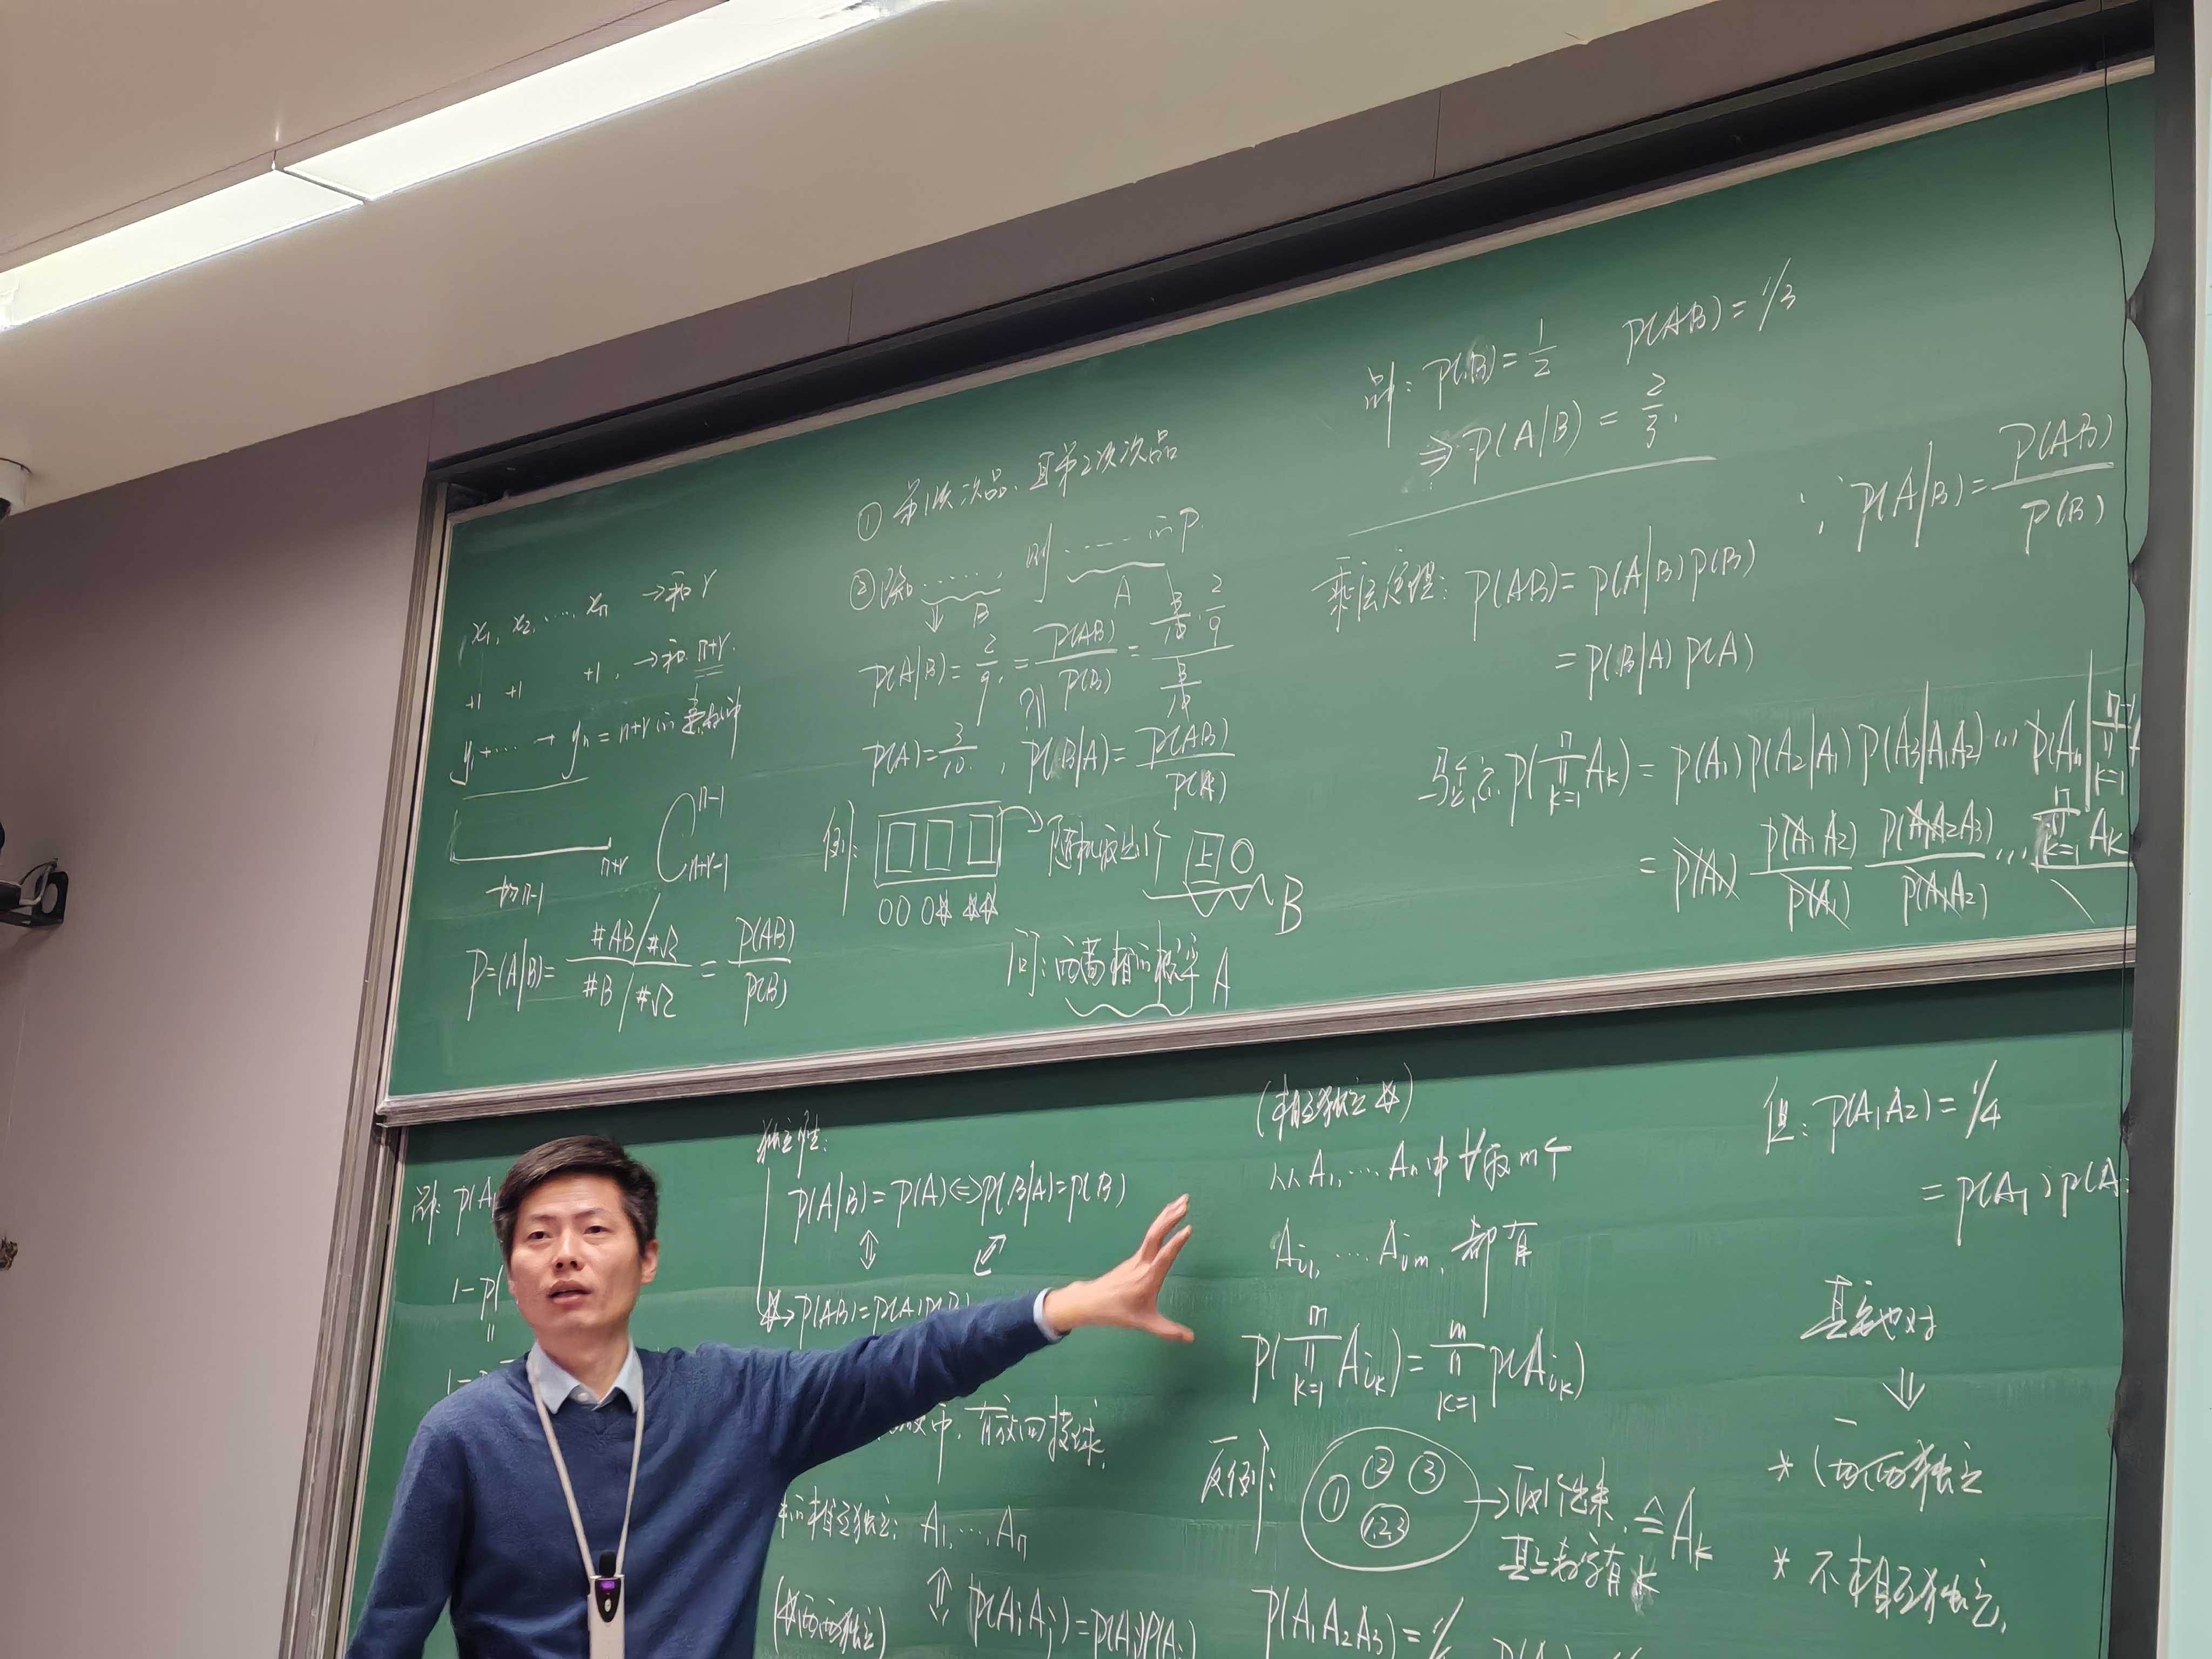 x₁, x₂, ..., xₙ → 和 r
+1 +1 +1, → 和 n+r.
y₁ + ... + yₙ = n+r
n+r
n-1
C_{n+r-1}^{n-1}
P=(A|B)= (#AB/#Ω)/(#B/#Ω) = P(AB)/P(B)
① 第1次次品, 且第2次次品
② 已知 ...... 则 ...... 的P.
B A
P(A|B)= 2/9 = P(AB)/P(B) = (3/10 · 2/9)/(3/10)
P(A)= 3/10, P(B|A)= P(AB)/P(A)
例: 随机取出1个 上 ○
B
问: 两者相同概率 A
解: P(B)= 1/2 P(AB)= 1/3
⇒ P(A|B) = 2/3.
∵ P(A|B)= P(AB)/P(B)
乘法定理: P(AB)= P(A|B)P(B)
= P(B|A)P(A)
验证: P(∏_{k=1}^{n} A_k)= P(A₁)P(A₂|A₁)P(A₃|A₁A₂)...P(Aₙ|∏_{k=1}^{n-1}
= P(A₁) P(A₁A₂)/P(A₁) P(A₁A₂A₃)/P(A₁A₂) ... ∏_{k=1}^{n} A_k
解: P(A
1-P(
独立性:
P(A|B)= P(A) ⇔ P(B|A)=P(B)
⇕
⇔ P(AB)=P(A)P(B)
中, 有放回摸球.
称相互独立: A₁, ..., Aₙ
(两两独立) P(AᵢAⱼ)=P(Aᵢ)P(Aⱼ)
(相互独立)
从 A₁, ... Aₙ 中 ∀取 m个
A_{i1}, ... A_{im}, 都有
P(∏_{k=1}^{m} A_{ik})= ∏_{k=1}^{m} P(A_{ik})
反例: ① ② ③ 1,2,3 → 取1个出来, ≙ A_k
其上数字有 k
P(A₁A₂A₃)= 1/
但: P(A₁A₂)= 1/4
= P(A₁)P(A
其它也对
⇓
* 两两独立
* 不相互独立.